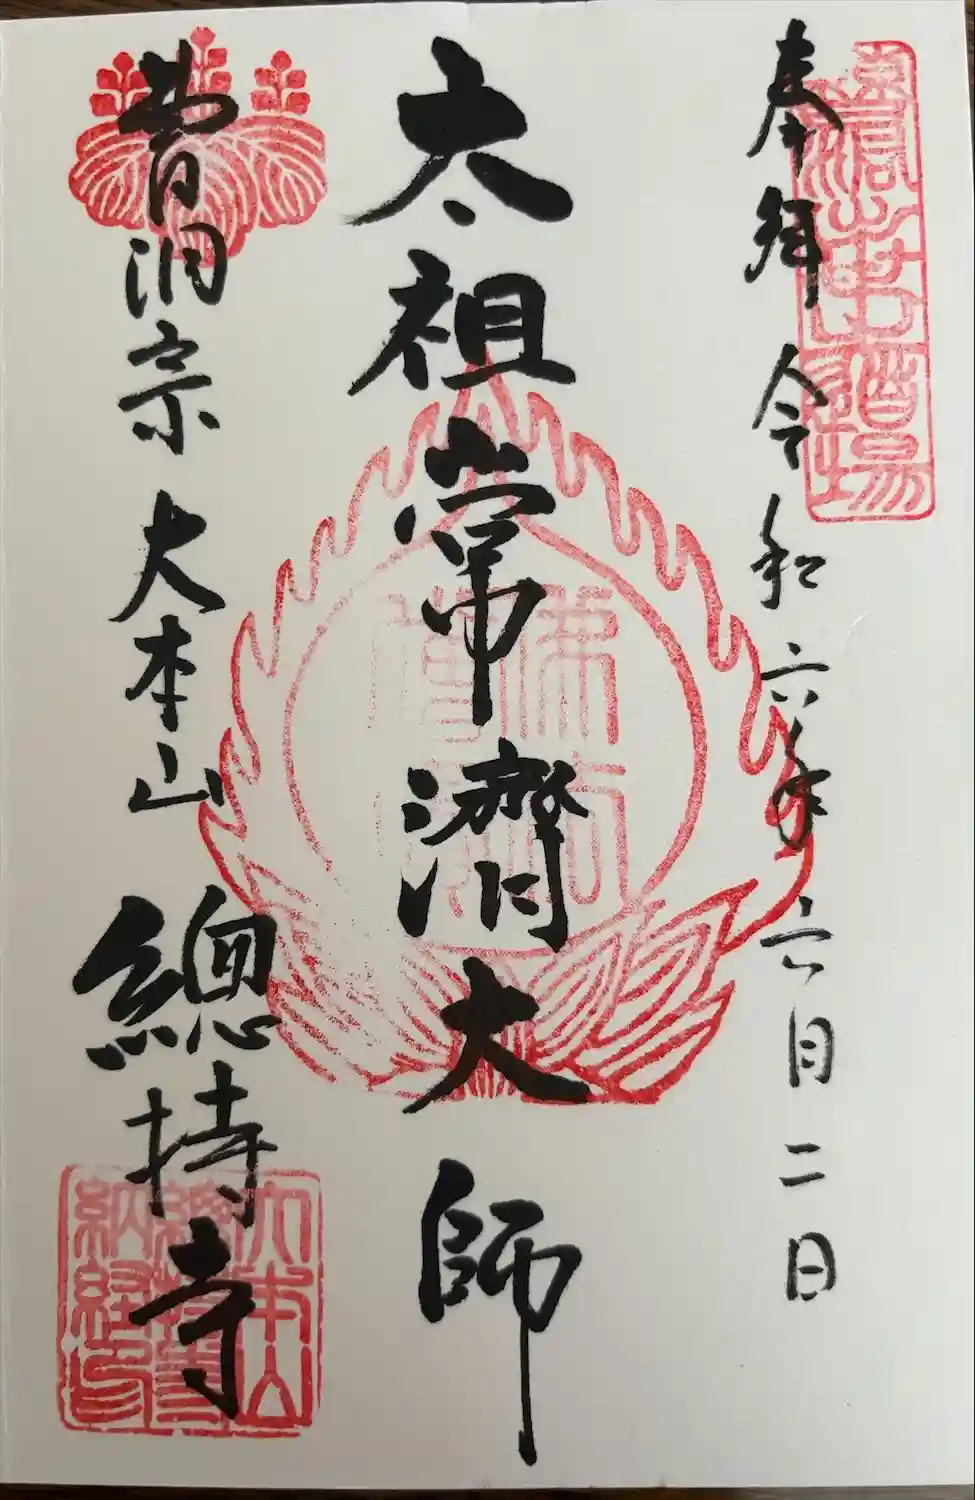 奉拝 令和六年六月二日
太祖常濟大師
曹洞宗 大本山 總持寺
大本山
總持寺
納経印